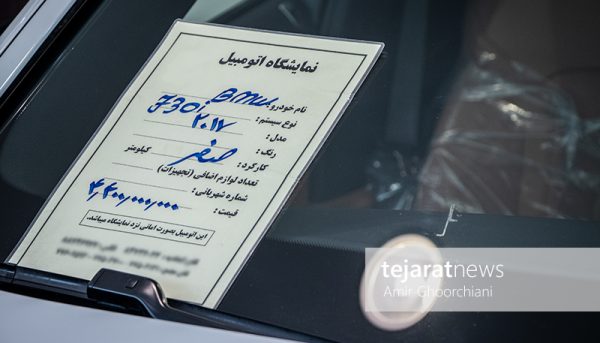 نمایشگاه اتومبیل
نام خودرو : BMW
نوع سیستم : 730i
مدل : ۲۰۱۷
رنگ :
کارکرد : صفر کیلومتر
تعداد لوازم اضافی (تجهیزات)
شماره شهربانی :
قیمت : ۴,۴۰۰,۰۰۰,۰۰۰
این اتومبیل بصورت امانی نزد نمایشگاه میباشد.
tejaratnews
Amir Ghoorchiani